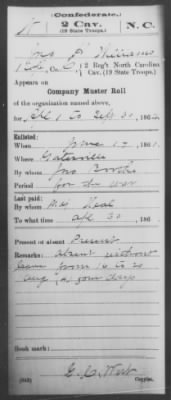 (Confederate.)
2 Cav.
(19 State Troops.)
N. C.
Williams
Co. C, 2 Reg't North Carolina
Cav. (19 State Troops.)
Appears on
Company Muster Roll
of the organization named above,
for 1 to Sept 30, 186
Enlisted:
When June 17, 186
Where Gatesville
By whom Jno
Period for the war
Last paid:
By whom Maj Neal
To what time Apl 30, 186
Present or absent Present
Remarks: Absent without
leave from 16 to 20
Aug, 4 days
Book mark:
Copyist.